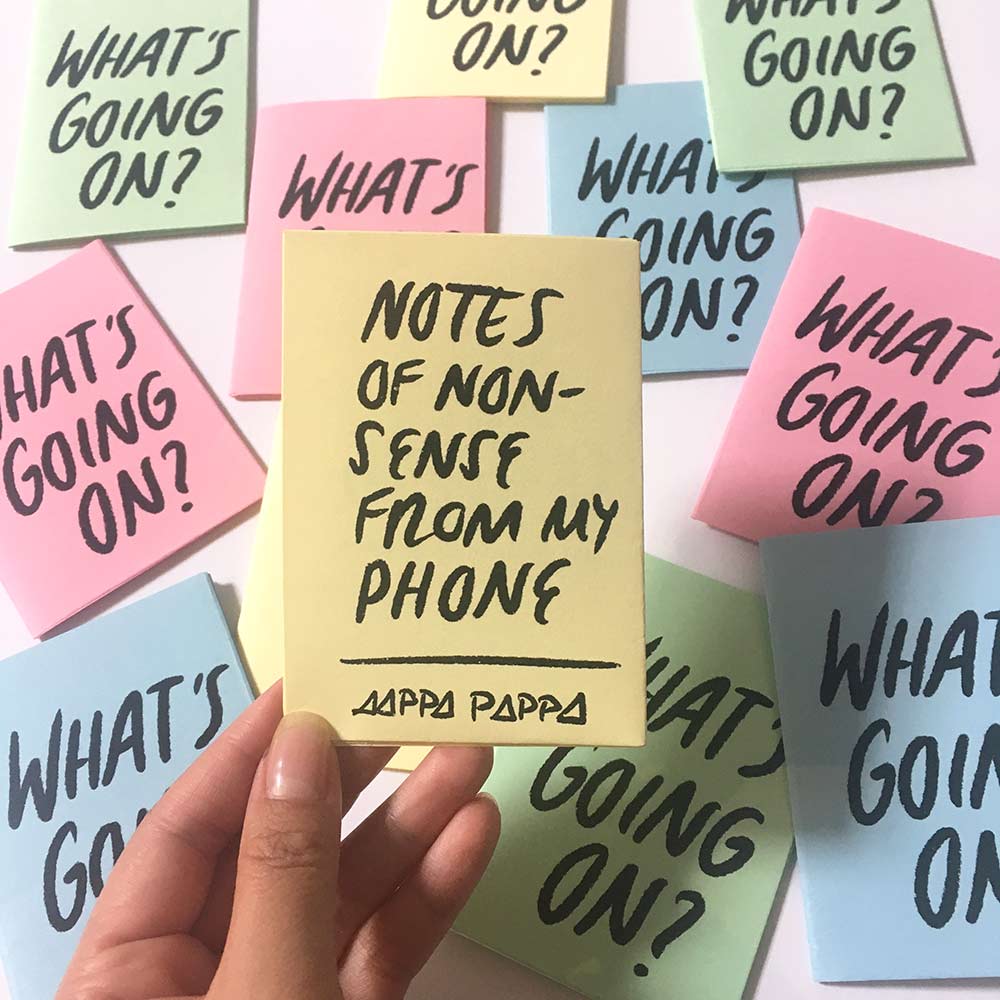 WHAT'S
GOING
ON?
GOING
ON?
WHAT'S
GOING
ON?
WHAT'S
WHAT'
GOING
ON?
NOTES
OF NON-
SENSE
FROM MY
PHONE
AAPPA PAPPA
WHAT'S
GOING
ON?
WHAT'S
GOING
ON?
WHAT'S
GO
HAT'S
GOING
ON?
WHAT
GOIN
ON